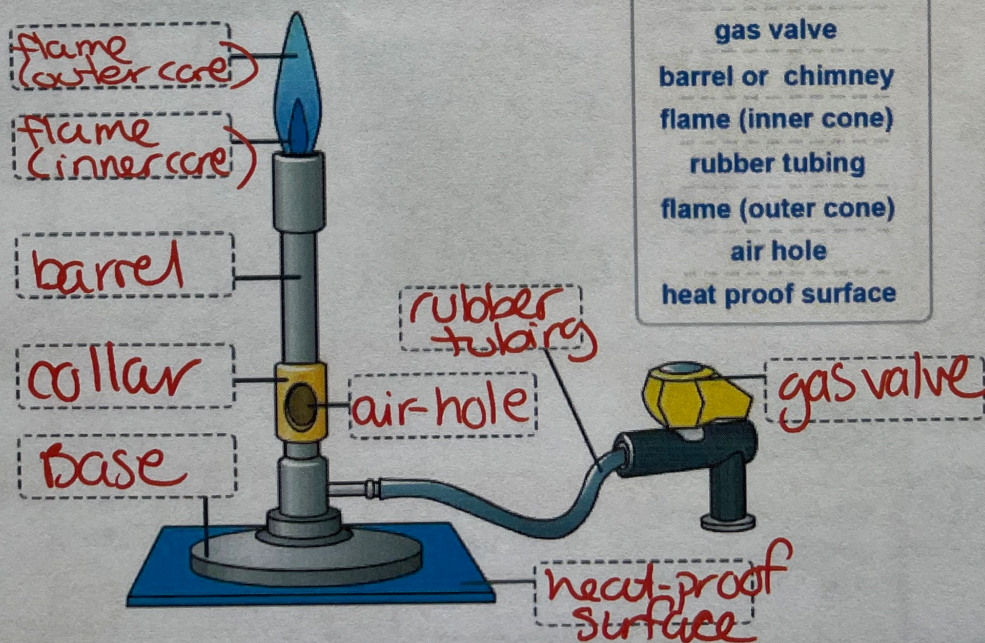 flame
(outer core)
flame
(inner core)
barrel
collar
Base
rubber
tubing
air-hole
gas valve
heat-proof
surface
gas valve
barrel or chimney
flame (inner cone)
rubber tubing
flame (outer cone)
air hole
heat proof surface